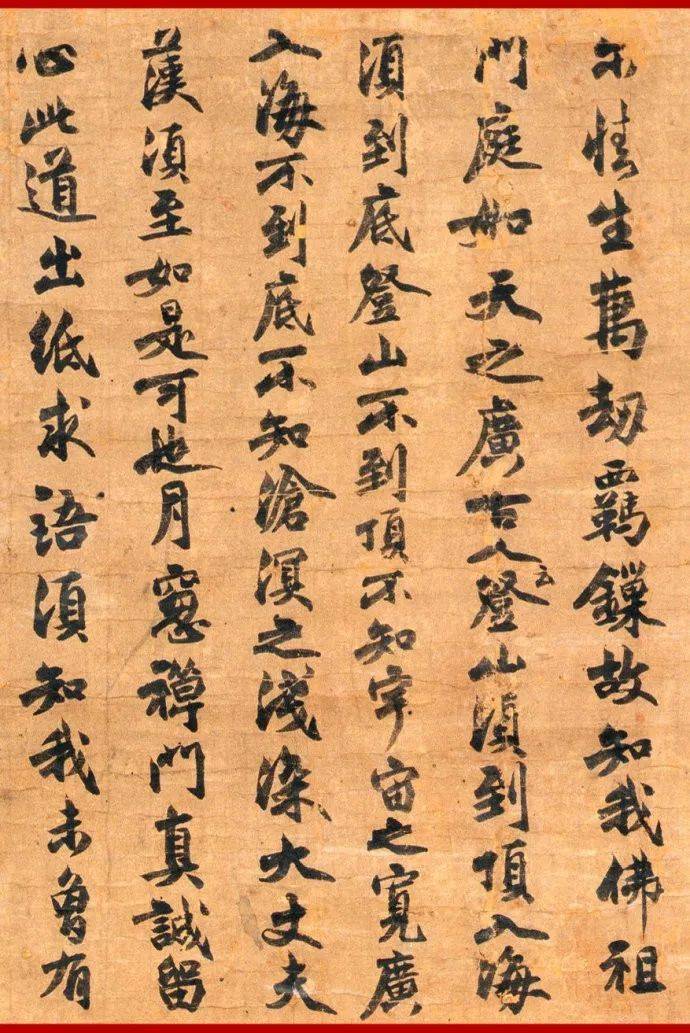 尔情生萬劫羈鏁故知我佛祖
門庭如天之廣古人云登山須到頂入海
須到底登山不到頂不知宇宙之寬廣
入海不到底不知滄溟之淺深大丈夫
漢須至如是可也月窓禪門真誠留
心此道出紙求語須知我未曾有